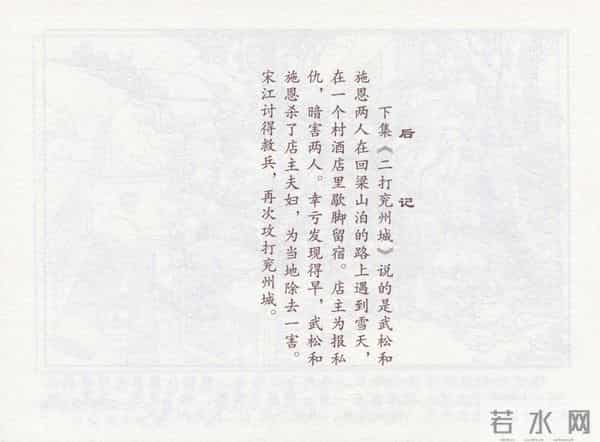 后记
下集《二打兖州城》说的是武松和
施恩两人在回梁山泊的路上遇到雪天，
在一个村酒店里歇脚留宿。店主为报私
仇，暗害两人。幸亏发现得早，武松和
施恩杀了店主夫妇，为当地除去一害。
宋江讨得救兵，再次攻打兖州城。
若水网